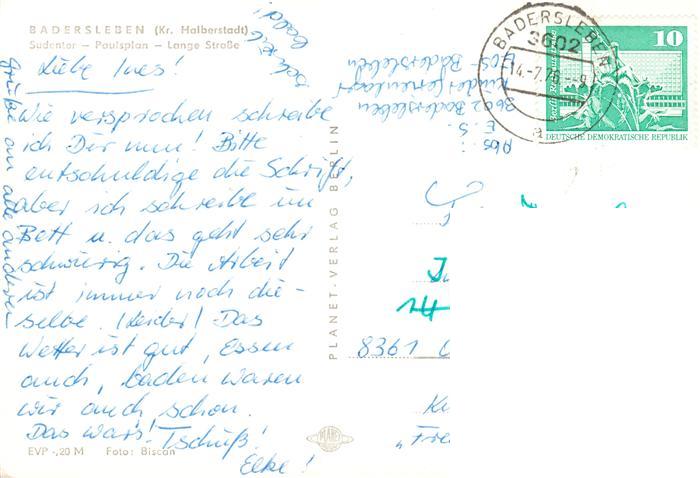 BADERSLEBEN (Kr. Halberstadt)
Sudentor – Paulsplan – Lange Straße
schreib bald!
Liebe Ines!
Wie versprochen schreibe
ich Dir nun! Bitte
entschuldige die Schrift,
aber ich schreibe im
Bett u. das geht sehr
schwierig. Die Arbeit
ist immer noch die-
selbe. (leider) Das
Wetter ist gut, Essen
auch, baden waren
wir auch schon.
Das wars! Tschüß!
Elke!
Grüße an alle anderen
EVP -,20 M Foto: Biscan
PLANET-VERLAG BERLIN
PLANET
Abs.:
E. S.
3602 Badersleben
Kinderferiendorf
Badersleben
BADERSLEBEN
3602
14.-7.76.-9
a
10
DEUTSCHE DEMOKRATISCHE REPUBLIK
J
14
8361